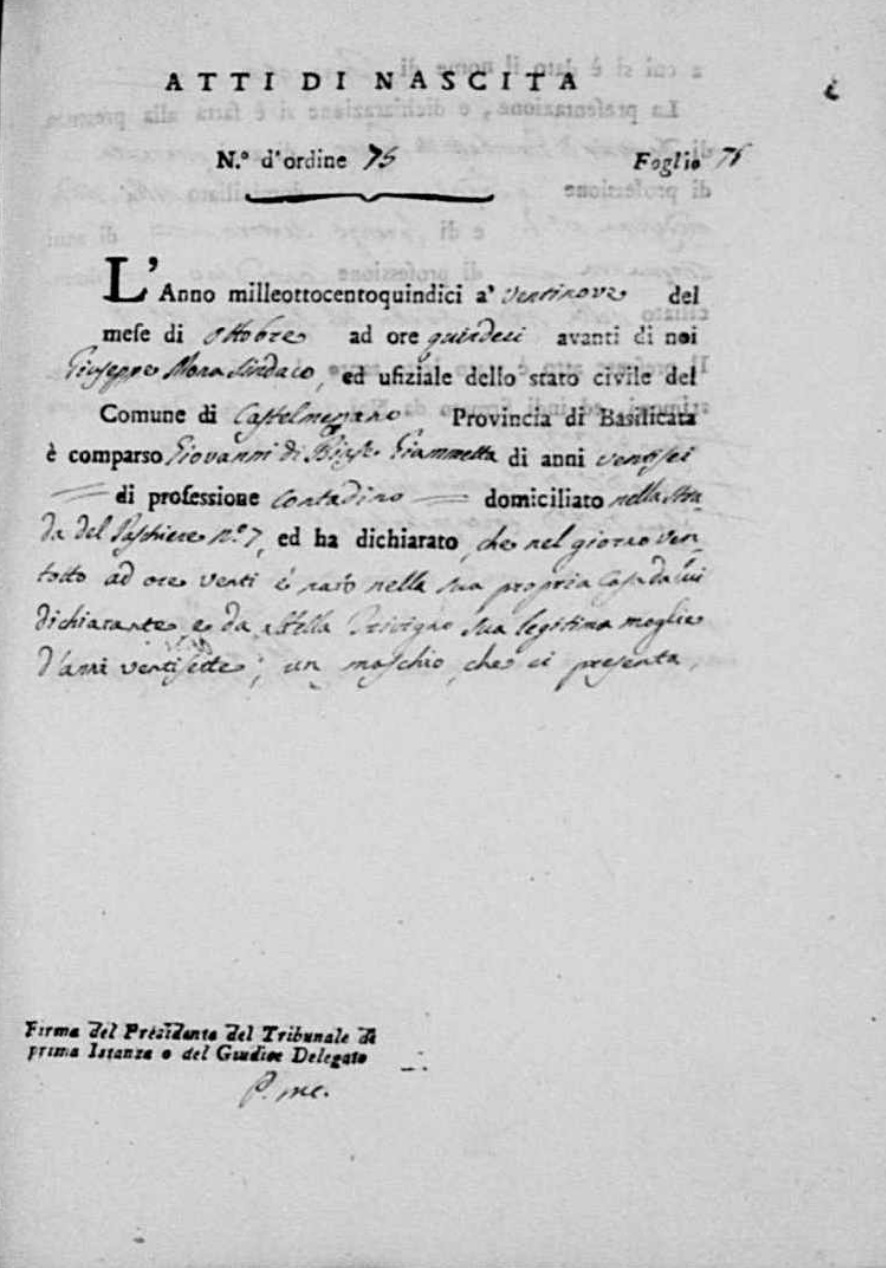 ATTI DI NASCITA
N.º d'ordine 75 Foglio 75
L'Anno milleottocentoquindici a' ventinove del
mese di Ottobre ad ore quindeci avanti di noi
Giuseppe Mona Sindaco, ed ufiziale dello stato civile del
Comune di Castelmezzano Provincia di Basilicata
è comparso Giovanni di Biase Giammetta di anni ventisei
di professione Contadino domiciliato nella Stra
da del Paschiere N.º 7, ed ha dichiarato, che nel giorno ven
totto ad ore venti è nato nella sua propria Casa da lui
dichiarante e da Stella Trivigno sua legitima moglie
d'anni ventisette; un maschio, che ci presenta,
Firma del Presidente del Tribunale di
prima Istanza o del Giudice Delegato